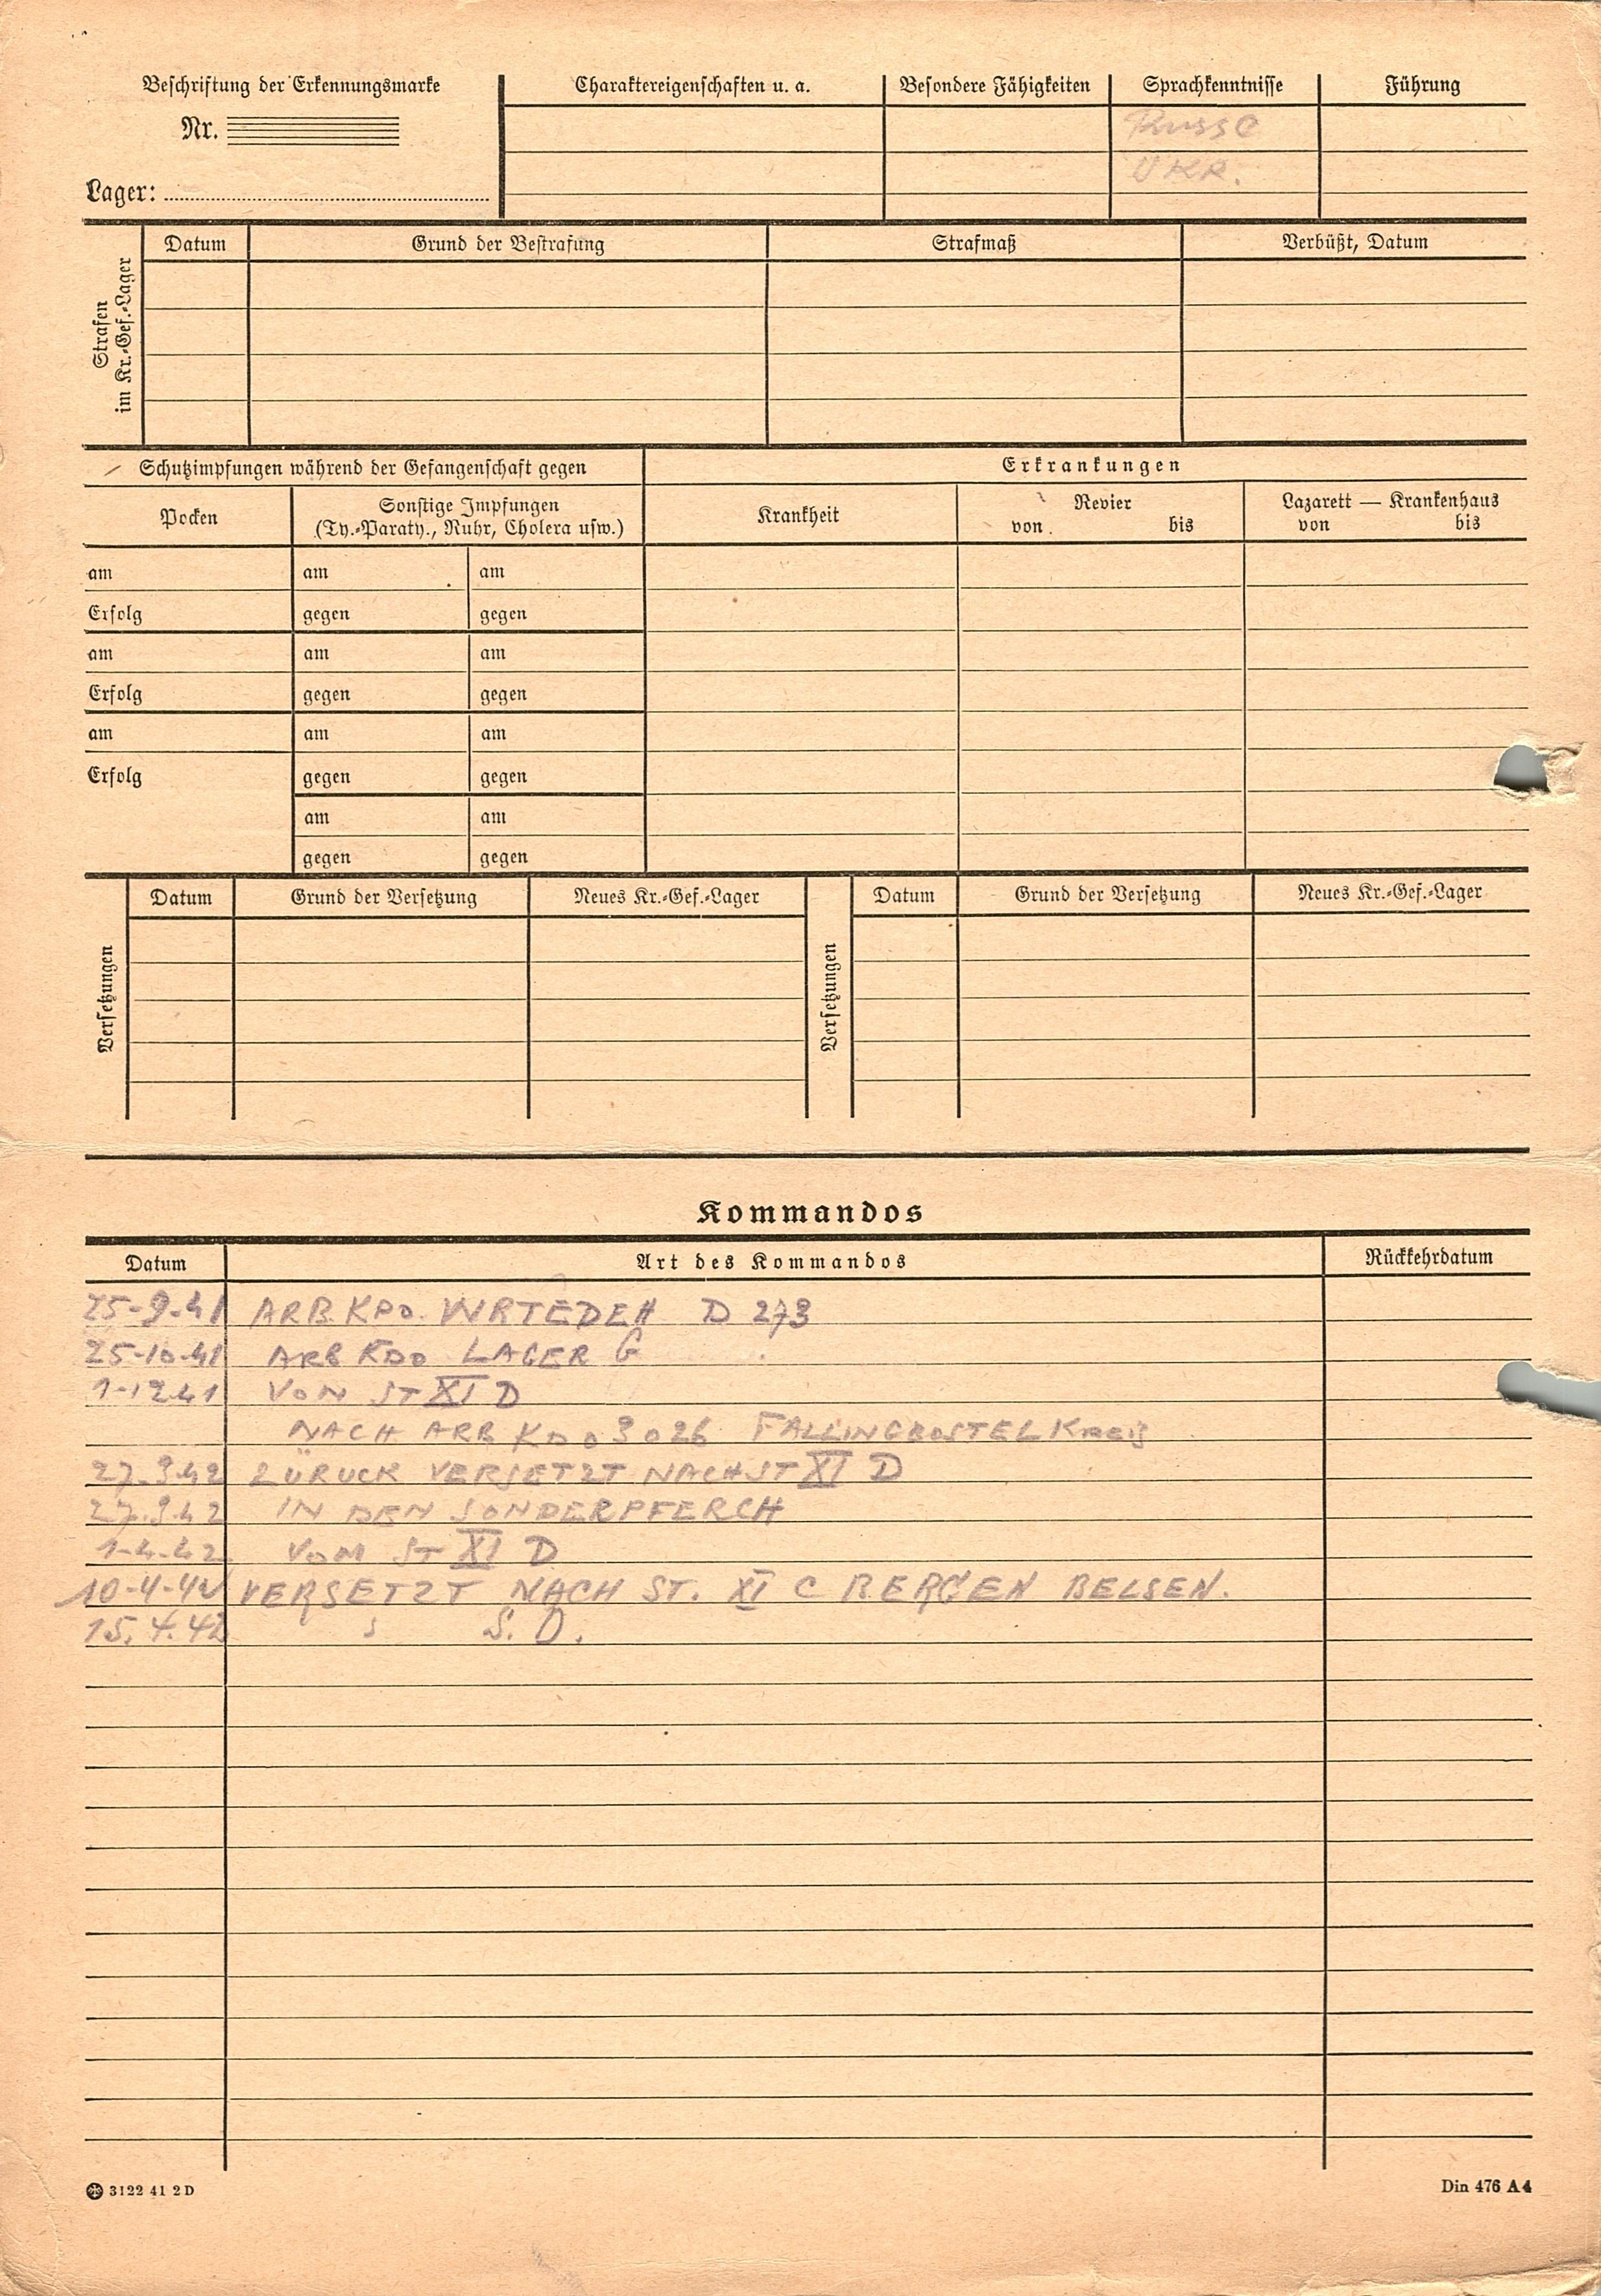 Beschriftung der Erkennungsmarke
Nr.
Lager:
Charaktereigenschaften u. a. Besondere Fähigkeiten Sprachkenntnisse Führung
Russe
UKR.
Strafen im Kr.-Gef.-Lager
Datum Grund der Bestrafung Strafmaß Verbüßt, Datum
Schutzimpfungen während der Gefangenschaft gegen Erkrankungen
Pocken Sonstige Impfungen Krankheit Revier Lazarett — Krankenhaus
(Ty.-Paraty., Ruhr, Cholera usw.) von bis von bis
am am am
Erfolg gegen gegen
am am am
Erfolg gegen gegen
am am am
Erfolg gegen gegen
am am
gegen gegen
Versetzungen Datum Grund der Versetzung Neues Kr.-Gef.-Lager Versetzungen Datum Grund der Versetzung Neues Kr.-Gef.-Lager
Kommandos
Datum Art des Kommandos Rückkehrdatum
25-9-41 ARB. KDO. D 273
25-10-41 ARB KDO LAGER G
1-12-41 VON ST XI D
NACH ARB KDO 3026 FALLINGBOSTEL KREIS
27.3.42 ZÜRUCK VERSETZT NACH ST XI D
27.3.42 IN DEN SONDERPFERCH
1-4-42 VOM ST XI D
10-4-42 VERSETZT NACH ST. XI C BERGEN BELSEN.
15.4.42 S. D.
3122 41 2 D
Din 476 A4